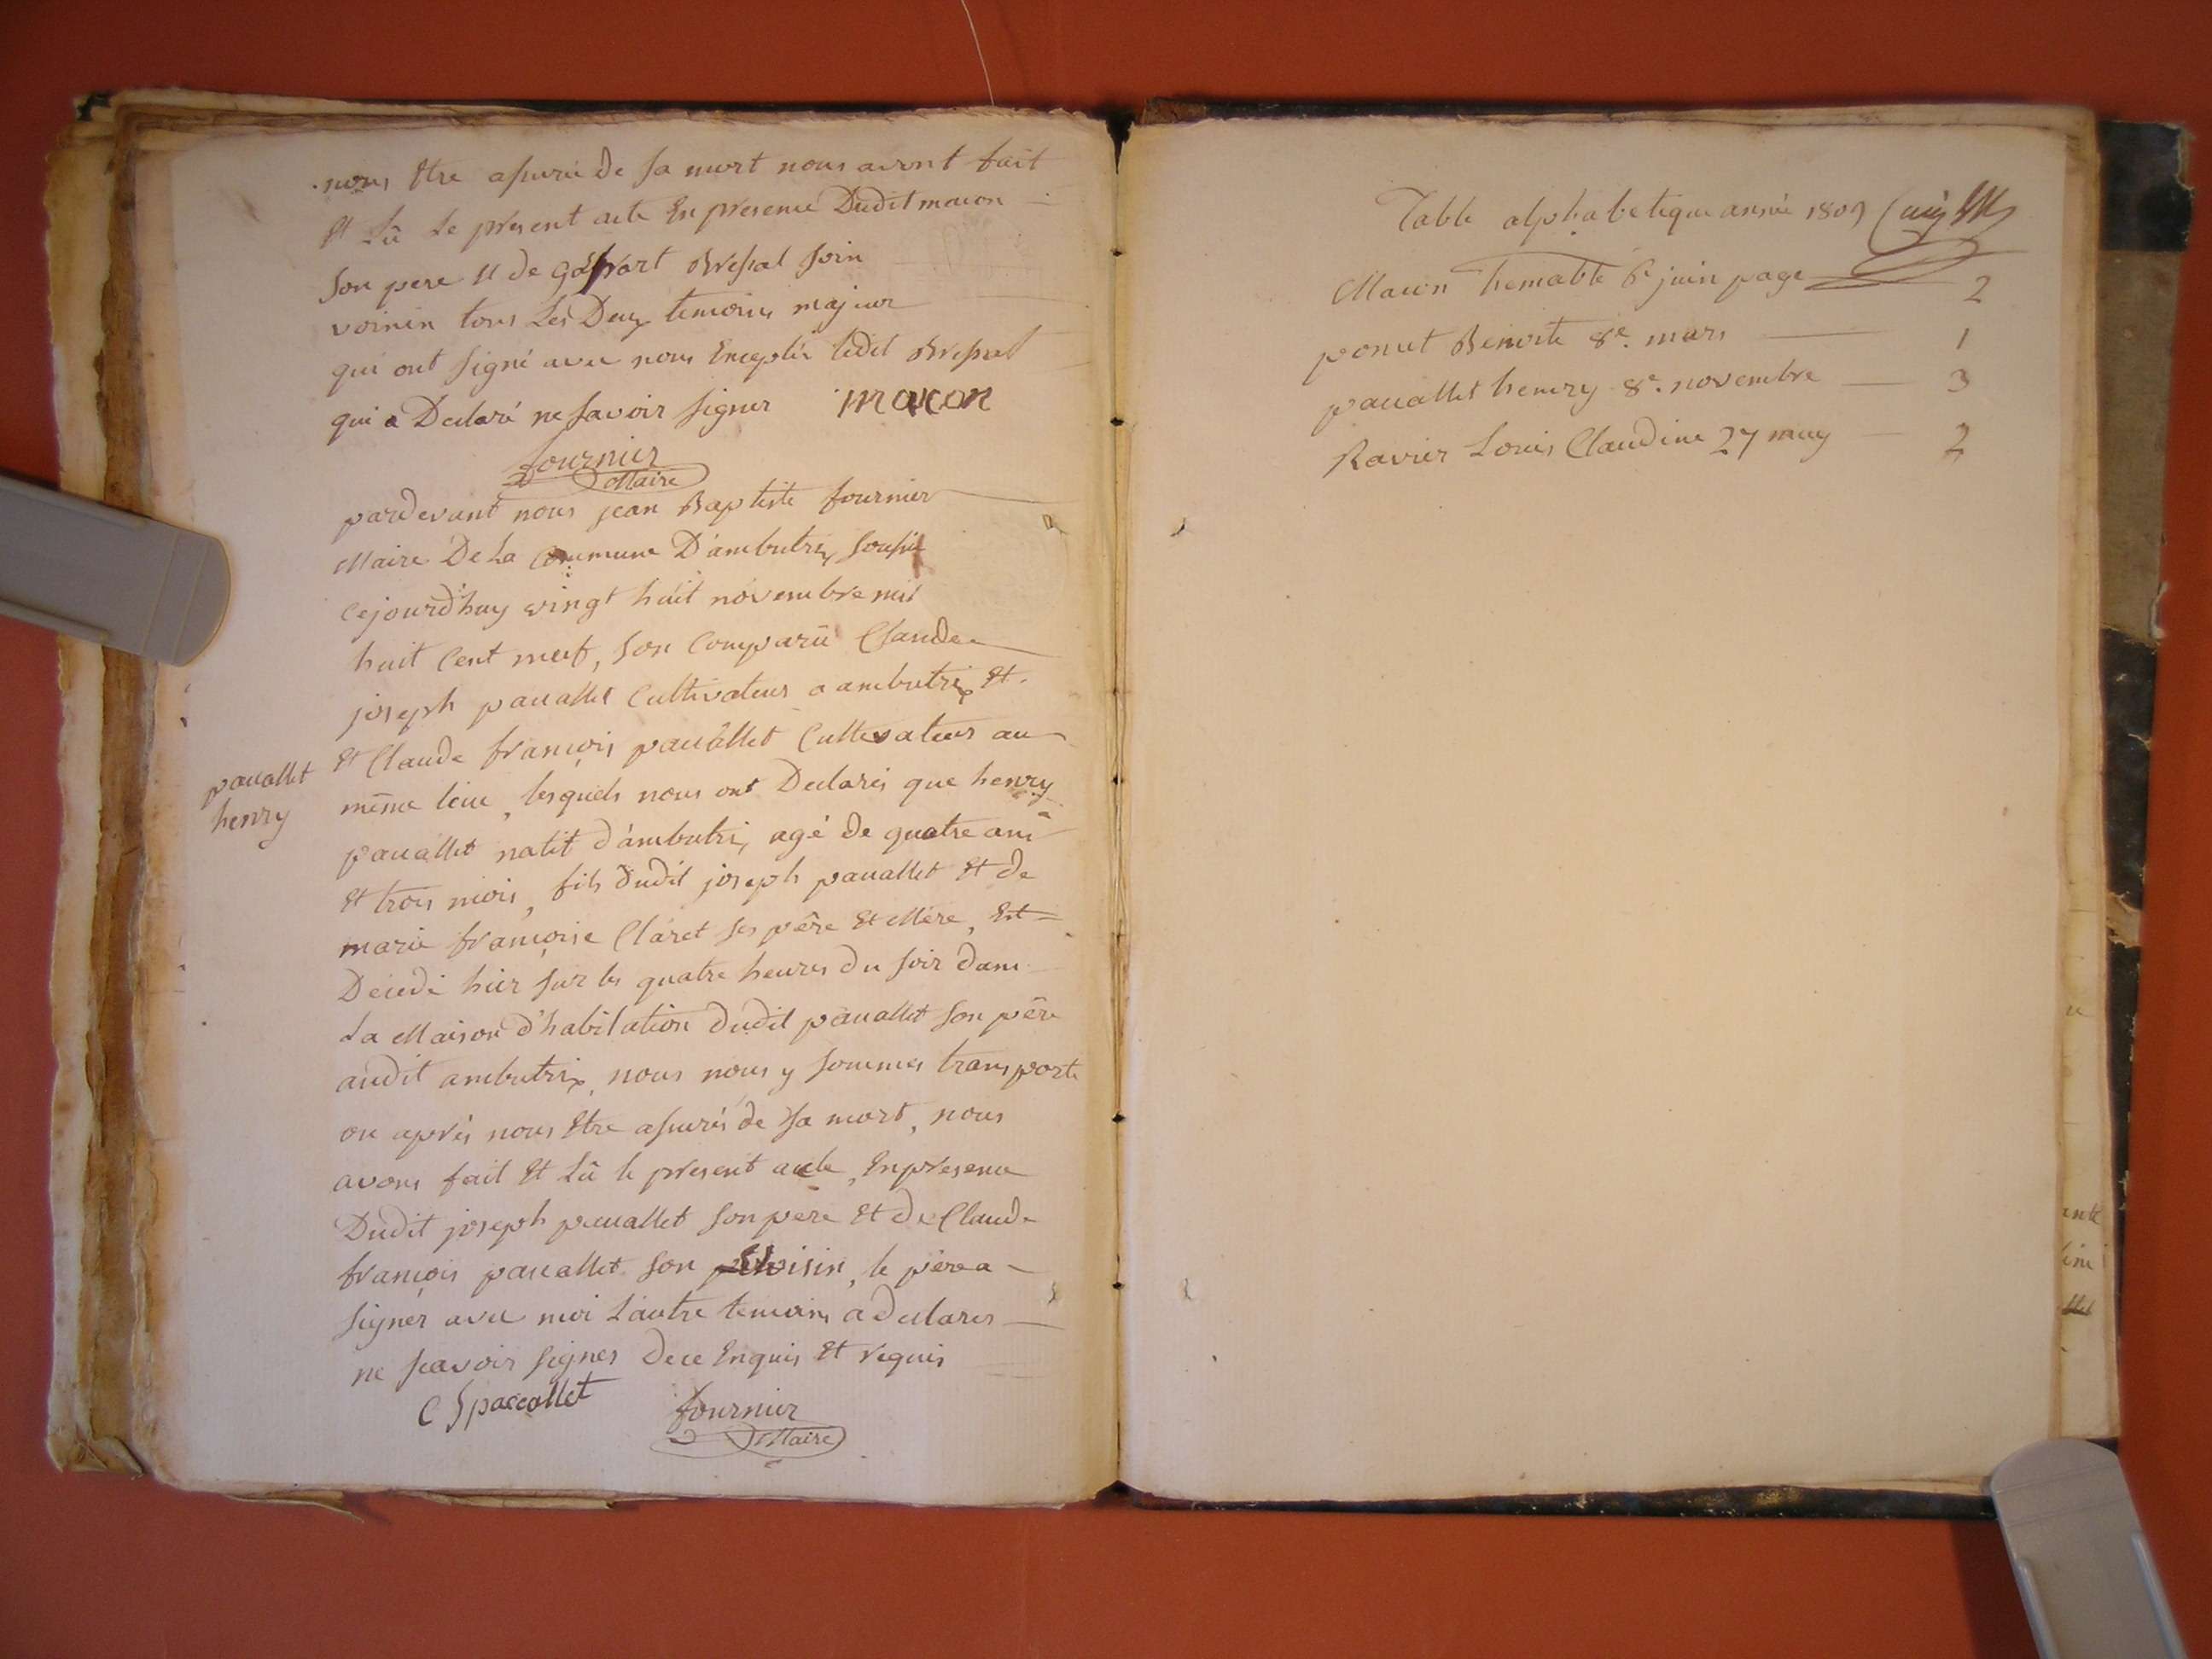 nous Etre assuré de sa mort nous avont fait
Et Lû Le présent acte En presence Dudit macon
Son pere Et de gaspart Bressat soin
voinin tous Les Deux temoins majeur
qui ont signé avec nous Exceptér ledit Bressat
qui a Declaré ne savoir signer macon
fournier
Maire
pardevant nous jean Baptiste fournier
Maire De La Commune D'ambutrix
Cejourd'huy vingt huit novembre mil
huit Cent neuf, son Comparü Claude
joseph pacallet Cultivateur a ambutrix Et
Et Claude françois pacallet Cultivateur au
pacallet
henry
même lieu, lesquels nous ont Declarés que henry
pacallet natif d'ambutrix, agé de quatre ans
Et trois mois, fils dudit joseph pacallet Et de
marie françoise Claret ses père Et Mère, Est
Décedé hier sur les quatre heures du soir dans
La Maison d'habitation dudit pacallet son père
audit ambutrix, nous nous y sommes transporte
ou après nous Etre assurés de sa mort, nous
avons fait Et Lû le présent acte, En presence
Dudit joseph pacallet son pere Et de Claude
françois pacallet son voisin, le père a
signer avec moi L'autre temoins a declarer
ne sçavoir signer de ce Enquis Et requis
C J paccallet fournier
Maire
Table alphabetique année 1809
Macon 6e juin page 2
ponet Benoite 8e. mars 1
pacallet henry 8e. novembre 3
Ravier Louis Claudine 27 may 2